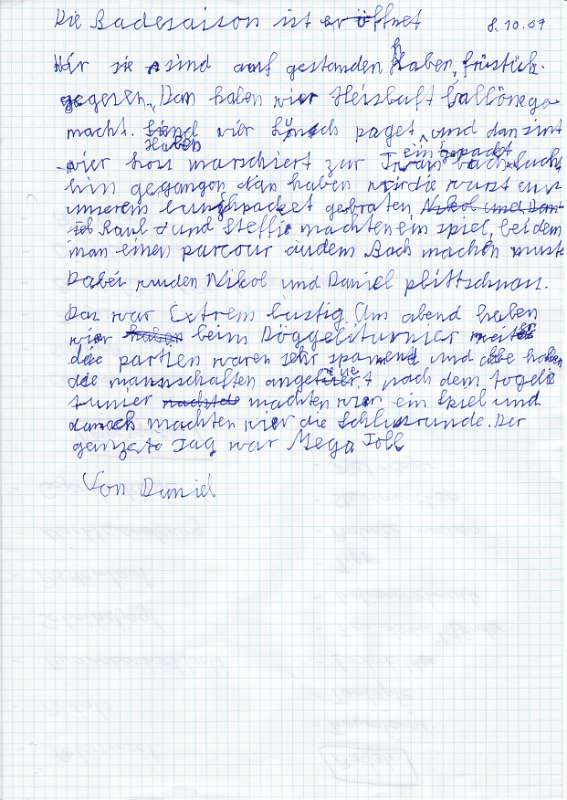 Die Badesaison ist eröffnet 8.10.09
Wir sie sind auf gestanden haben, früstück
gegeren, Dan haben wier Heisluft ballönege
macht. Haben wier Lünsch paget, und dan sint
wier los marschiert zur eingepackt
hin gegangen dan haben wir die wurst aus
unserem lunchpacket gebraten, Nikol und Dani
Raul und Steffi machten ein spiel, bei dem
man einen parcour audem Bach machen muste
Dabei wurden Nikol und Daniel plittschnass.
Das war Extrem lustig. Am abend haben
wier haben beim Döggeliturnier
die partien waren sehr spannend und haben
die mannschaften angefeuert nach dem
turnier machten wier ein Spiel und
danach machten wier die Schlussrunde. Der
ganze Tag war Mega Toll
Von Daniel